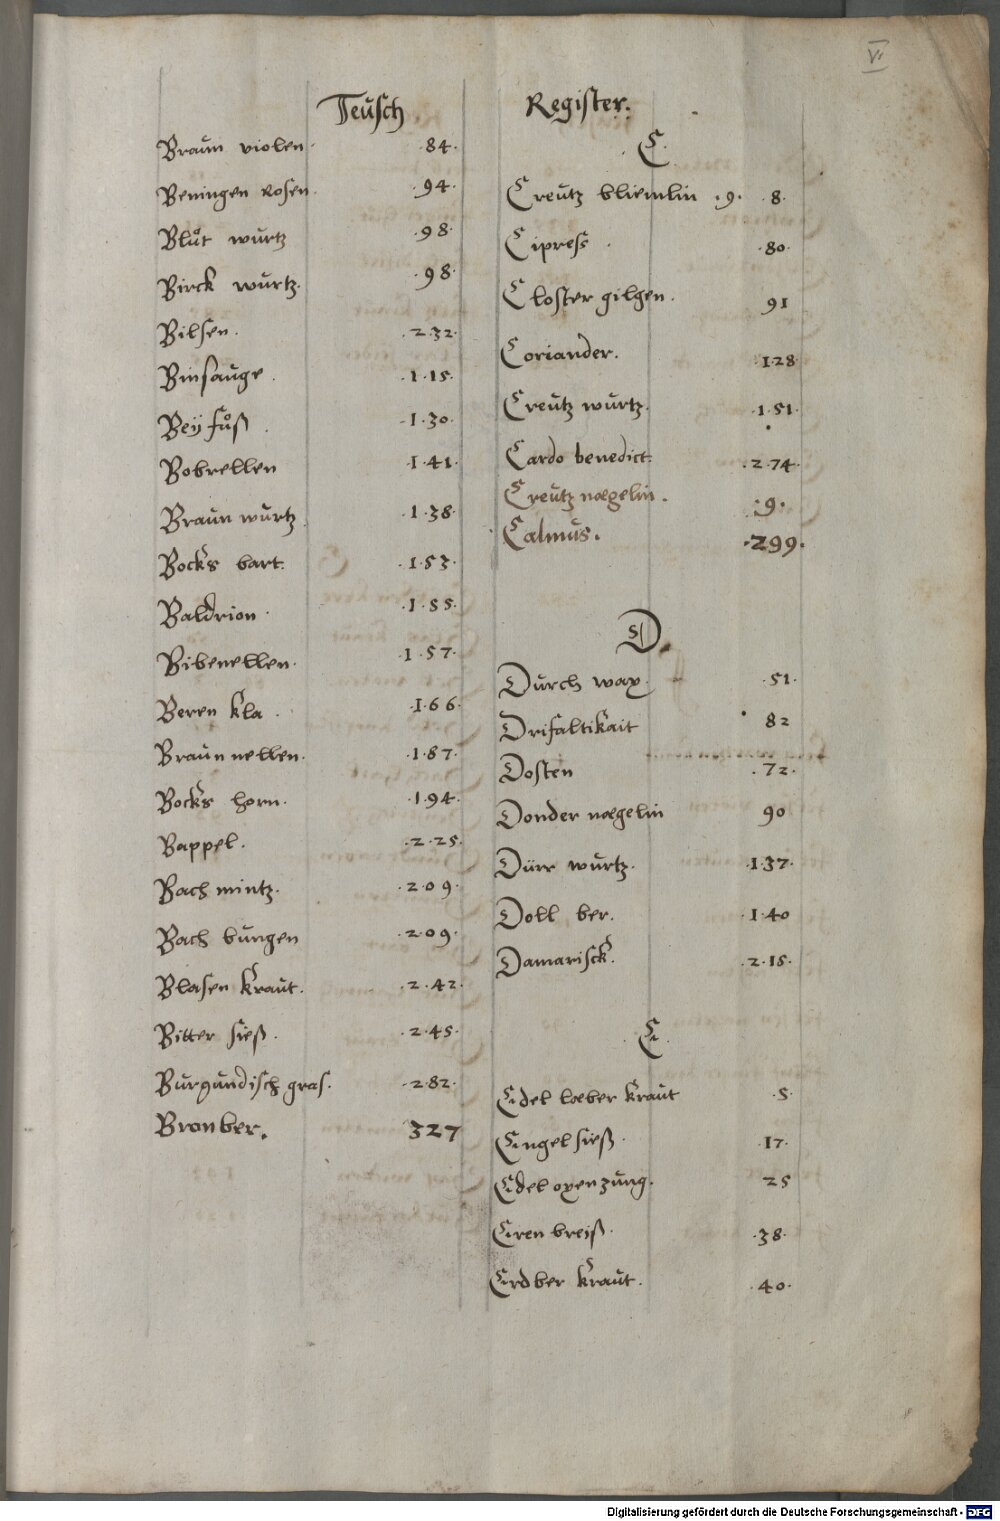 VI
Teusch Register.
Braun violen. .84.
Beningen Rosen. .94.
Blůt wurtz .98.
Birck wurtz. .98.
Bilsen. .232.
Binsauge. .115.
Beÿ fůß. .130.
Bobrellen .141.
Braun wurtz .138.
Bocks bart. .153.
Baldrion. .155.
Bibenellen. .157.
Beren kla. .166.
Braun nellen. .187.
Bocks horn. .194.
Bappel. .225.
Bach mintz. .209.
Bach bungen .209.
Blasen kraut. .242.
Bitter sieß. .245.
Burgundisch gras. .282.
Bronber. 327
C.
Creutz bliemlin .9. 8.
Cipress. .80.
Closter gilgen. 91
Coriander. .128
Creutz wurtz. .151.
Cardo benedict. .274.
Creutz nægelin. .9.
Calmus. .299.
D.
Durch wax. .51.
Drifaltikait 82
Dosten .72.
Donder nægelin 90
Dürr wurtz. .137.
Doll ber. .140
Damarisck. .215.
E.
Edel læber kraut .5.
Engel sieß. .17.
Edel oxen zung. 25
Eren breiß. .38.
Erdber kraut. .40.
Digitalisierung gefördert durch die Deutsche Forschungsgemeinschaft - DFG